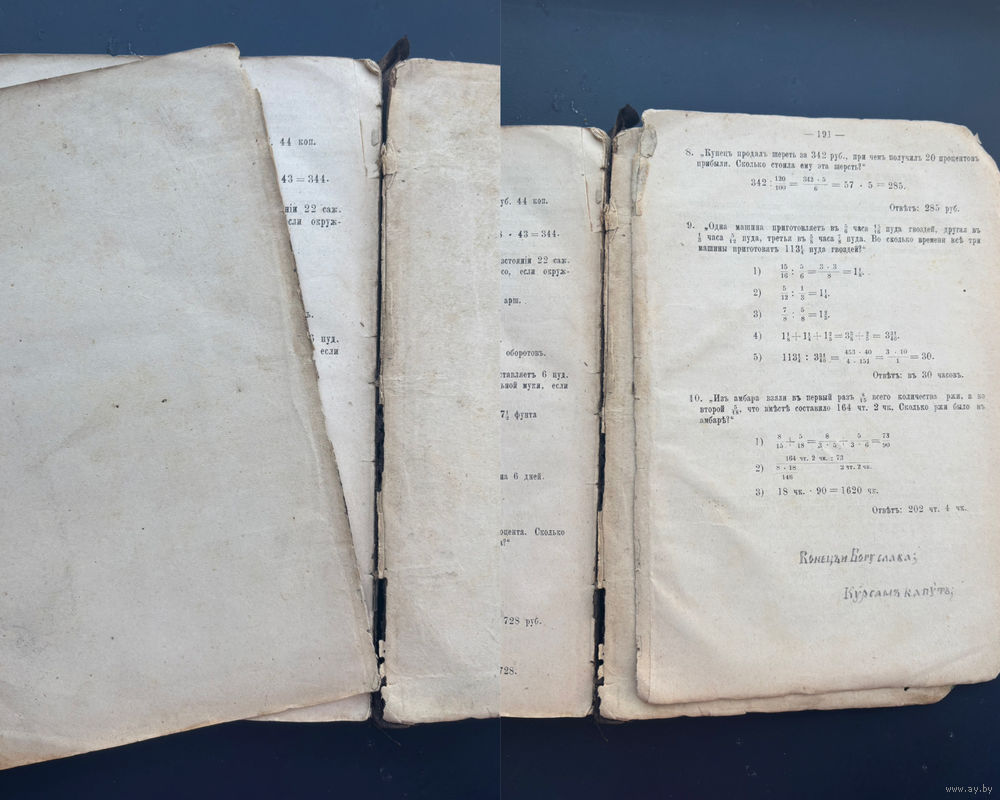 44 коп.
43 = 344.
22 саж.
если окруж-
6 пуд.
если
уб. 44 коп.
· 43 = 344.
22 саж.
со, если окруж-
арш.
оборотовъ.
ставляетъ 6 пуд.
муки, если
фунта
на 6 дней.
Сколько
728 руб.
728.
— 191 —
8. „Купецъ продалъ шерсть за 342 руб., при чемъ получилъ 20 процентовъ
прибыли. Сколько стоила ему эта шерсть?“
342 : 120/100 = 342 · 5/6 = 57 · 5 = 285.
Отвѣтъ: 285 руб.
9. „Одна машина приготовляетъ въ 5/6 часа 15/16 пуда гвоздей, другая въ
1/3 часа 5/12 пуда, третья въ 5/8 часа 7/8 пуда. Во сколько времени всѣ три
машины приготовятъ 113 1/4 пуда гвоздей?“
1) 15/16 : 5/6 = 3 · 3/8 = 1 1/8.
2) 5/12 : 1/3 = 1 1/4.
3) 7/8 : 5/8 = 1 2/5.
4) 1 1/8 + 1 1/4 + 1 2/5 = 3 3/8 + 2/5 = 3 31/40.
5) 113 1/4 : 3 31/40 = 453 · 40/4 · 151 = 3 · 10/1 = 30.
Отвѣтъ: въ 30 часовъ.
10. „Изъ амбара взяли въ первый разъ 8/15 всего количества ржи, а во
второй 5/18, что вмѣстѣ составило 164 чт. 2 чк. Сколько ржи было въ
амбарѣ?“
1) 8/15 + 5/18 = 8/3 · 5 + 5/3 · 6 = 73/90
164 чт. 2 чк. : 73
2) 8 · 18 2 чт. 2 чк.
146
3) 18 чк. · 90 = 1620 чк.
Отвѣтъ: 202 чт. 4 чк.
Конецъ и Богу слава;
Курсамъ капутъ;
www.ay.by